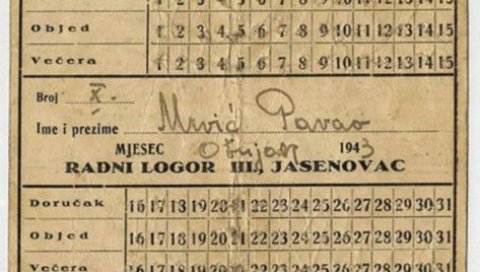 1 2 3 4 5 6 7 8 9 10 11 12 13 14 15
Objed 1 2 3 4 5 6 7 8 9 10 11 12 13 14 15
Večera 1 2 3 4 5 6 7 8 9 10 11 12 13 14 15
Broj X.
Ime i prezime Mrvić Pavao
MJESEC Ožujak 1943
RADNI LOGOR III., JASENOVAC
Doručak 16 17 18 19 20 21 22 23 24 25 26 27 28 29 30 31
Objed 16 17 18 19 20 21 22 23 24 25 26 27 28 29 30 31
Večera 16 17 18 19 20 21 22 23 24 25 26 27 28 29 30 31